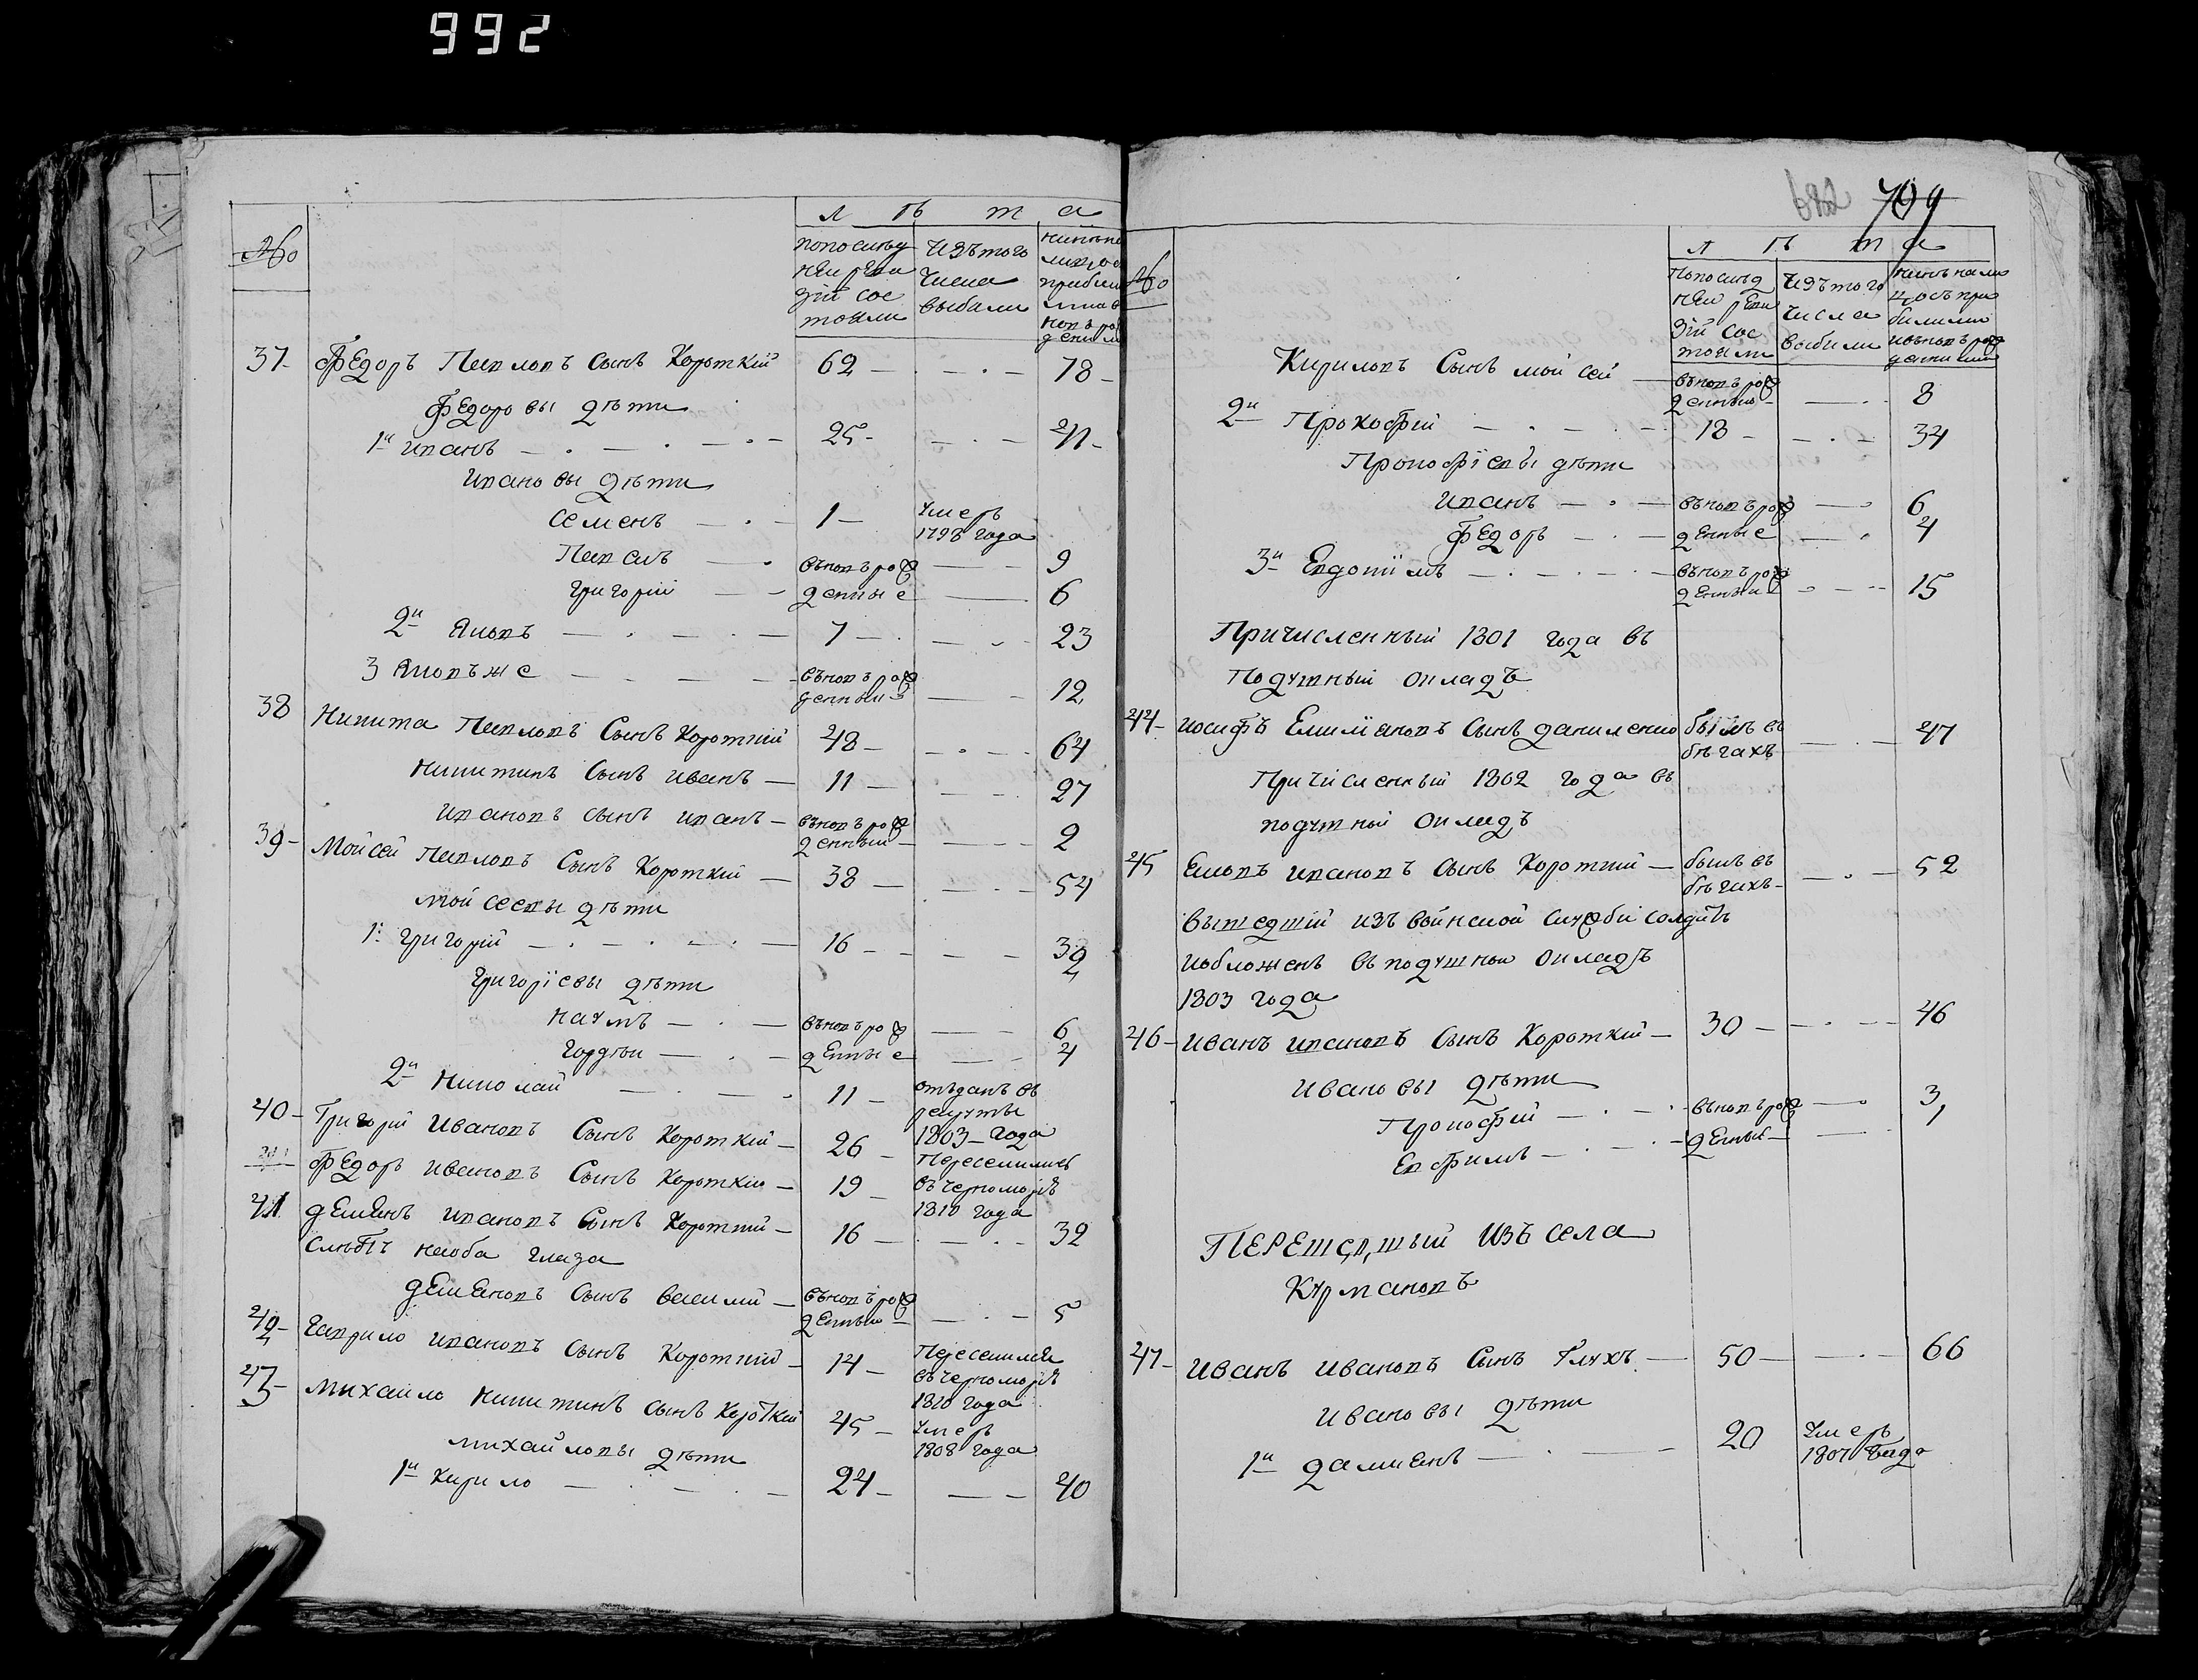 992
№
Л ѣ т а
по послѣд
ней реви
зіи сос
тояли
изъ того
числа
выбыли
37 Федоръ Павловъ Сынъ Короткій 62 — 78
Федоровы дѣти
1й Иванъ 25 — 41
Ивановы дѣти
Семенъ 1 — умеръ
1798 года
Павелъ въновъ рож 9
Григорій денные 6
2й Яковъ 7 — 23
3 Яковъ же въновъ рож
денный 12
38 Никита Павловъ Сынъ Короткій 48 — 64
Никитинъ Сынъ Иванъ 11 — 27
Ивановъ Сынъ Иванъ въновъ рож
денный 2
39 Мойсей Павловъ Сынъ Короткій 38 — 54
Мойсеевы дѣти
1й Григорій 16 — 32
Григоріевы дѣти
Наумъ въновъ рож 6
Гордѣй денные 4
2й Николай 11 — отъданъ въ
рекруты
1803 года
40 Григорій Ивановъ Сынъ Короткій 26
Федоръ Ивановъ Сынъ Короткій 19
Переселились
въ Черноморѣ
1810 года
41 Демьянъ Ивановъ Сынъ Короткій 16 — 32
Слѣпъ на оба глаза
Демьяновъ Сынъ Василій въновъ рож
денный 5
42 Гаврило Ивановъ Сынъ Короткій 14 — Переселился
въ Черноморѣ
1810 года
43 Михайло Никитинъ Сынъ Короткій 45 — умеръ
1808 года
Михайловы дѣти
1й Кирило 24 — 40
709
№
Л ѣ т а
По послѣд
ней реви
зіи сос
тояли
изъ того
числа
выбыли
Кириловъ Сынъ Мойсей въновъ рож
денный 8
2й Прокофій 18 — 34
Прокофіевы дѣти
Иванъ въновъ рож 6
Федоръ денные 4
3й Евдокимъ въновъ рож
денный 15
Причисленный 1801 года въ
Подушный окладъ
44 Иосифъ Емиліановъ Сынъ Даниленко былъ въ
бѣгахъ 47
Причисленный 1802 года въ
подушный окладъ
45 Яковъ Ивановъ Сынъ Короткій былъ въ
бѣгахъ 52
вышедшій изъ воинской службы солдатъ
и обложенъ въ подушный окладъ
1803 года
46 Иванъ Ивановъ Сынъ Короткій 30 — 46
Ивановы дѣти
Прокофій въновъ рож 3
Евфимъ денный
ПЕРЕШЕДШЫЙ изъ села
Курмановъ
47 Иванъ Ивановъ Сынъ Глухъ 50 — 66
Ивановы дѣти
1й Даміанъ 20 умеръ
1807 года